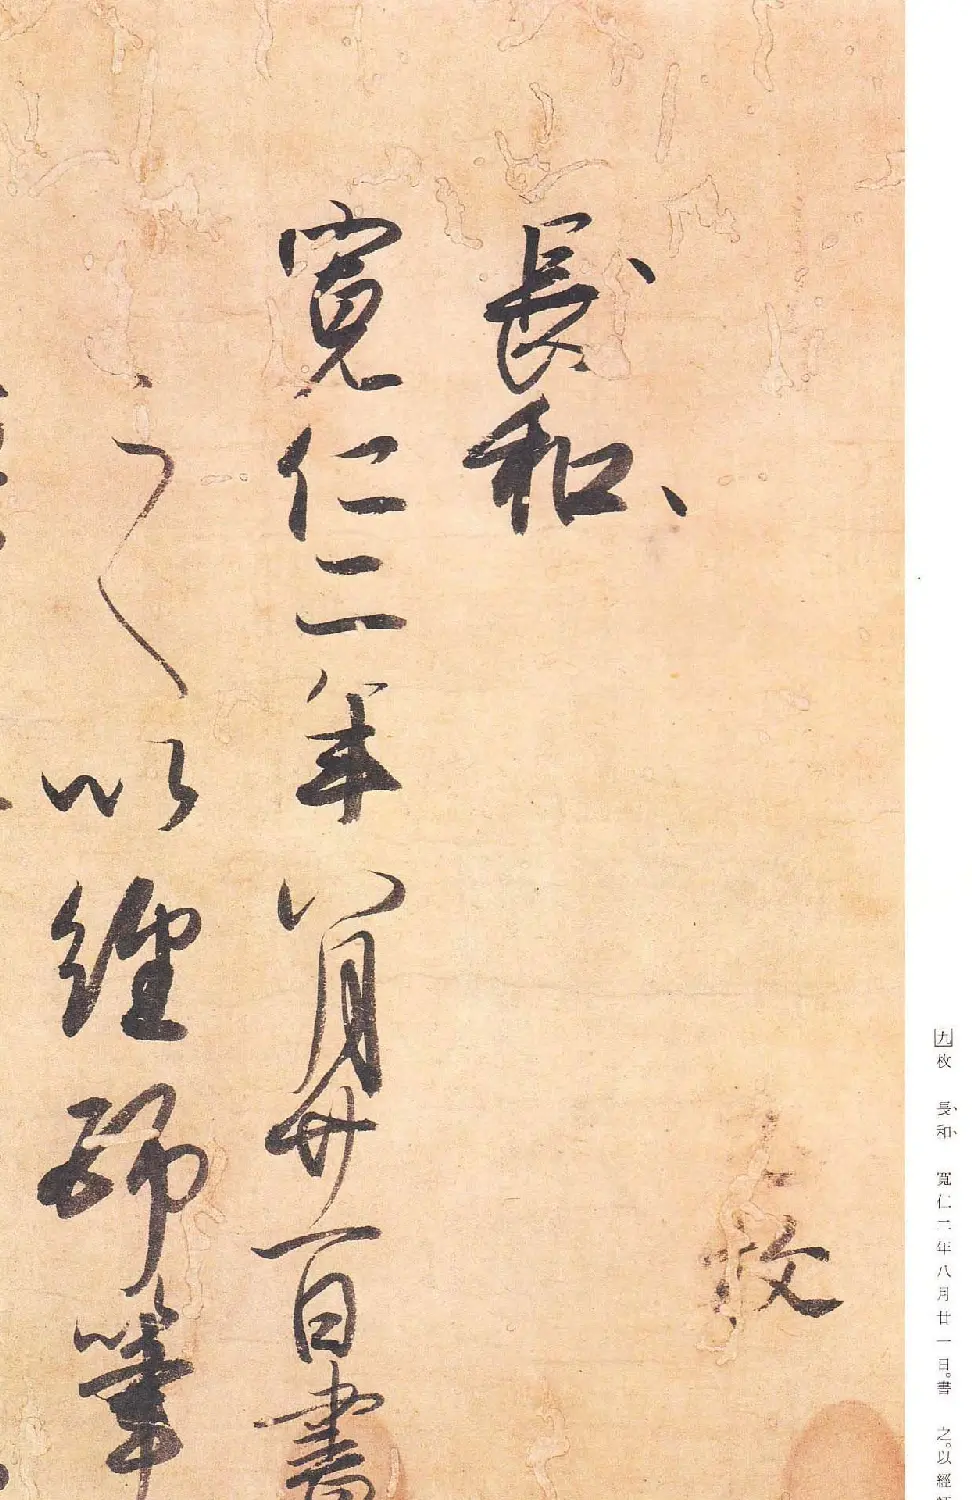 枚
長和
寛仁二年八月廿一日書
之以經師筆
九枚 長和 寛仁二年八月廿一日。書 之。以經師